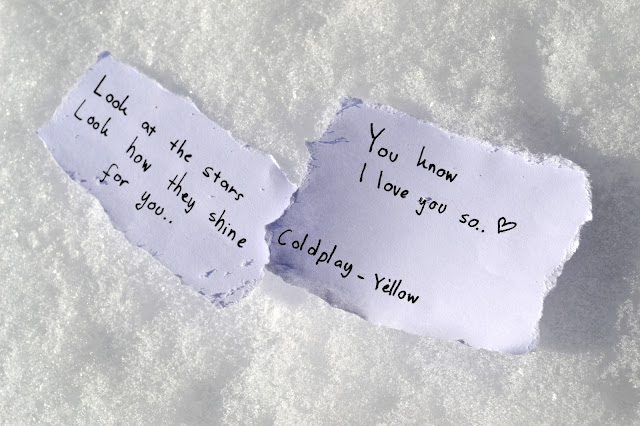 Look at the stars
Look how they shine
for you..
You know
I love you so.. ♡
Coldplay - Yellow